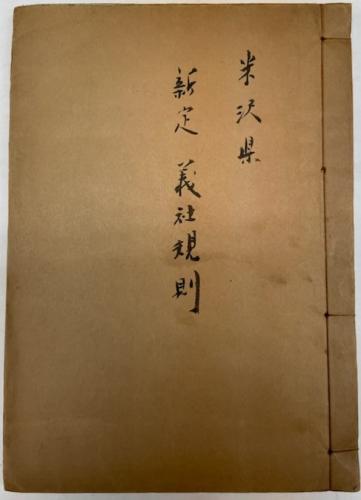 米沢県
新定 義社規則